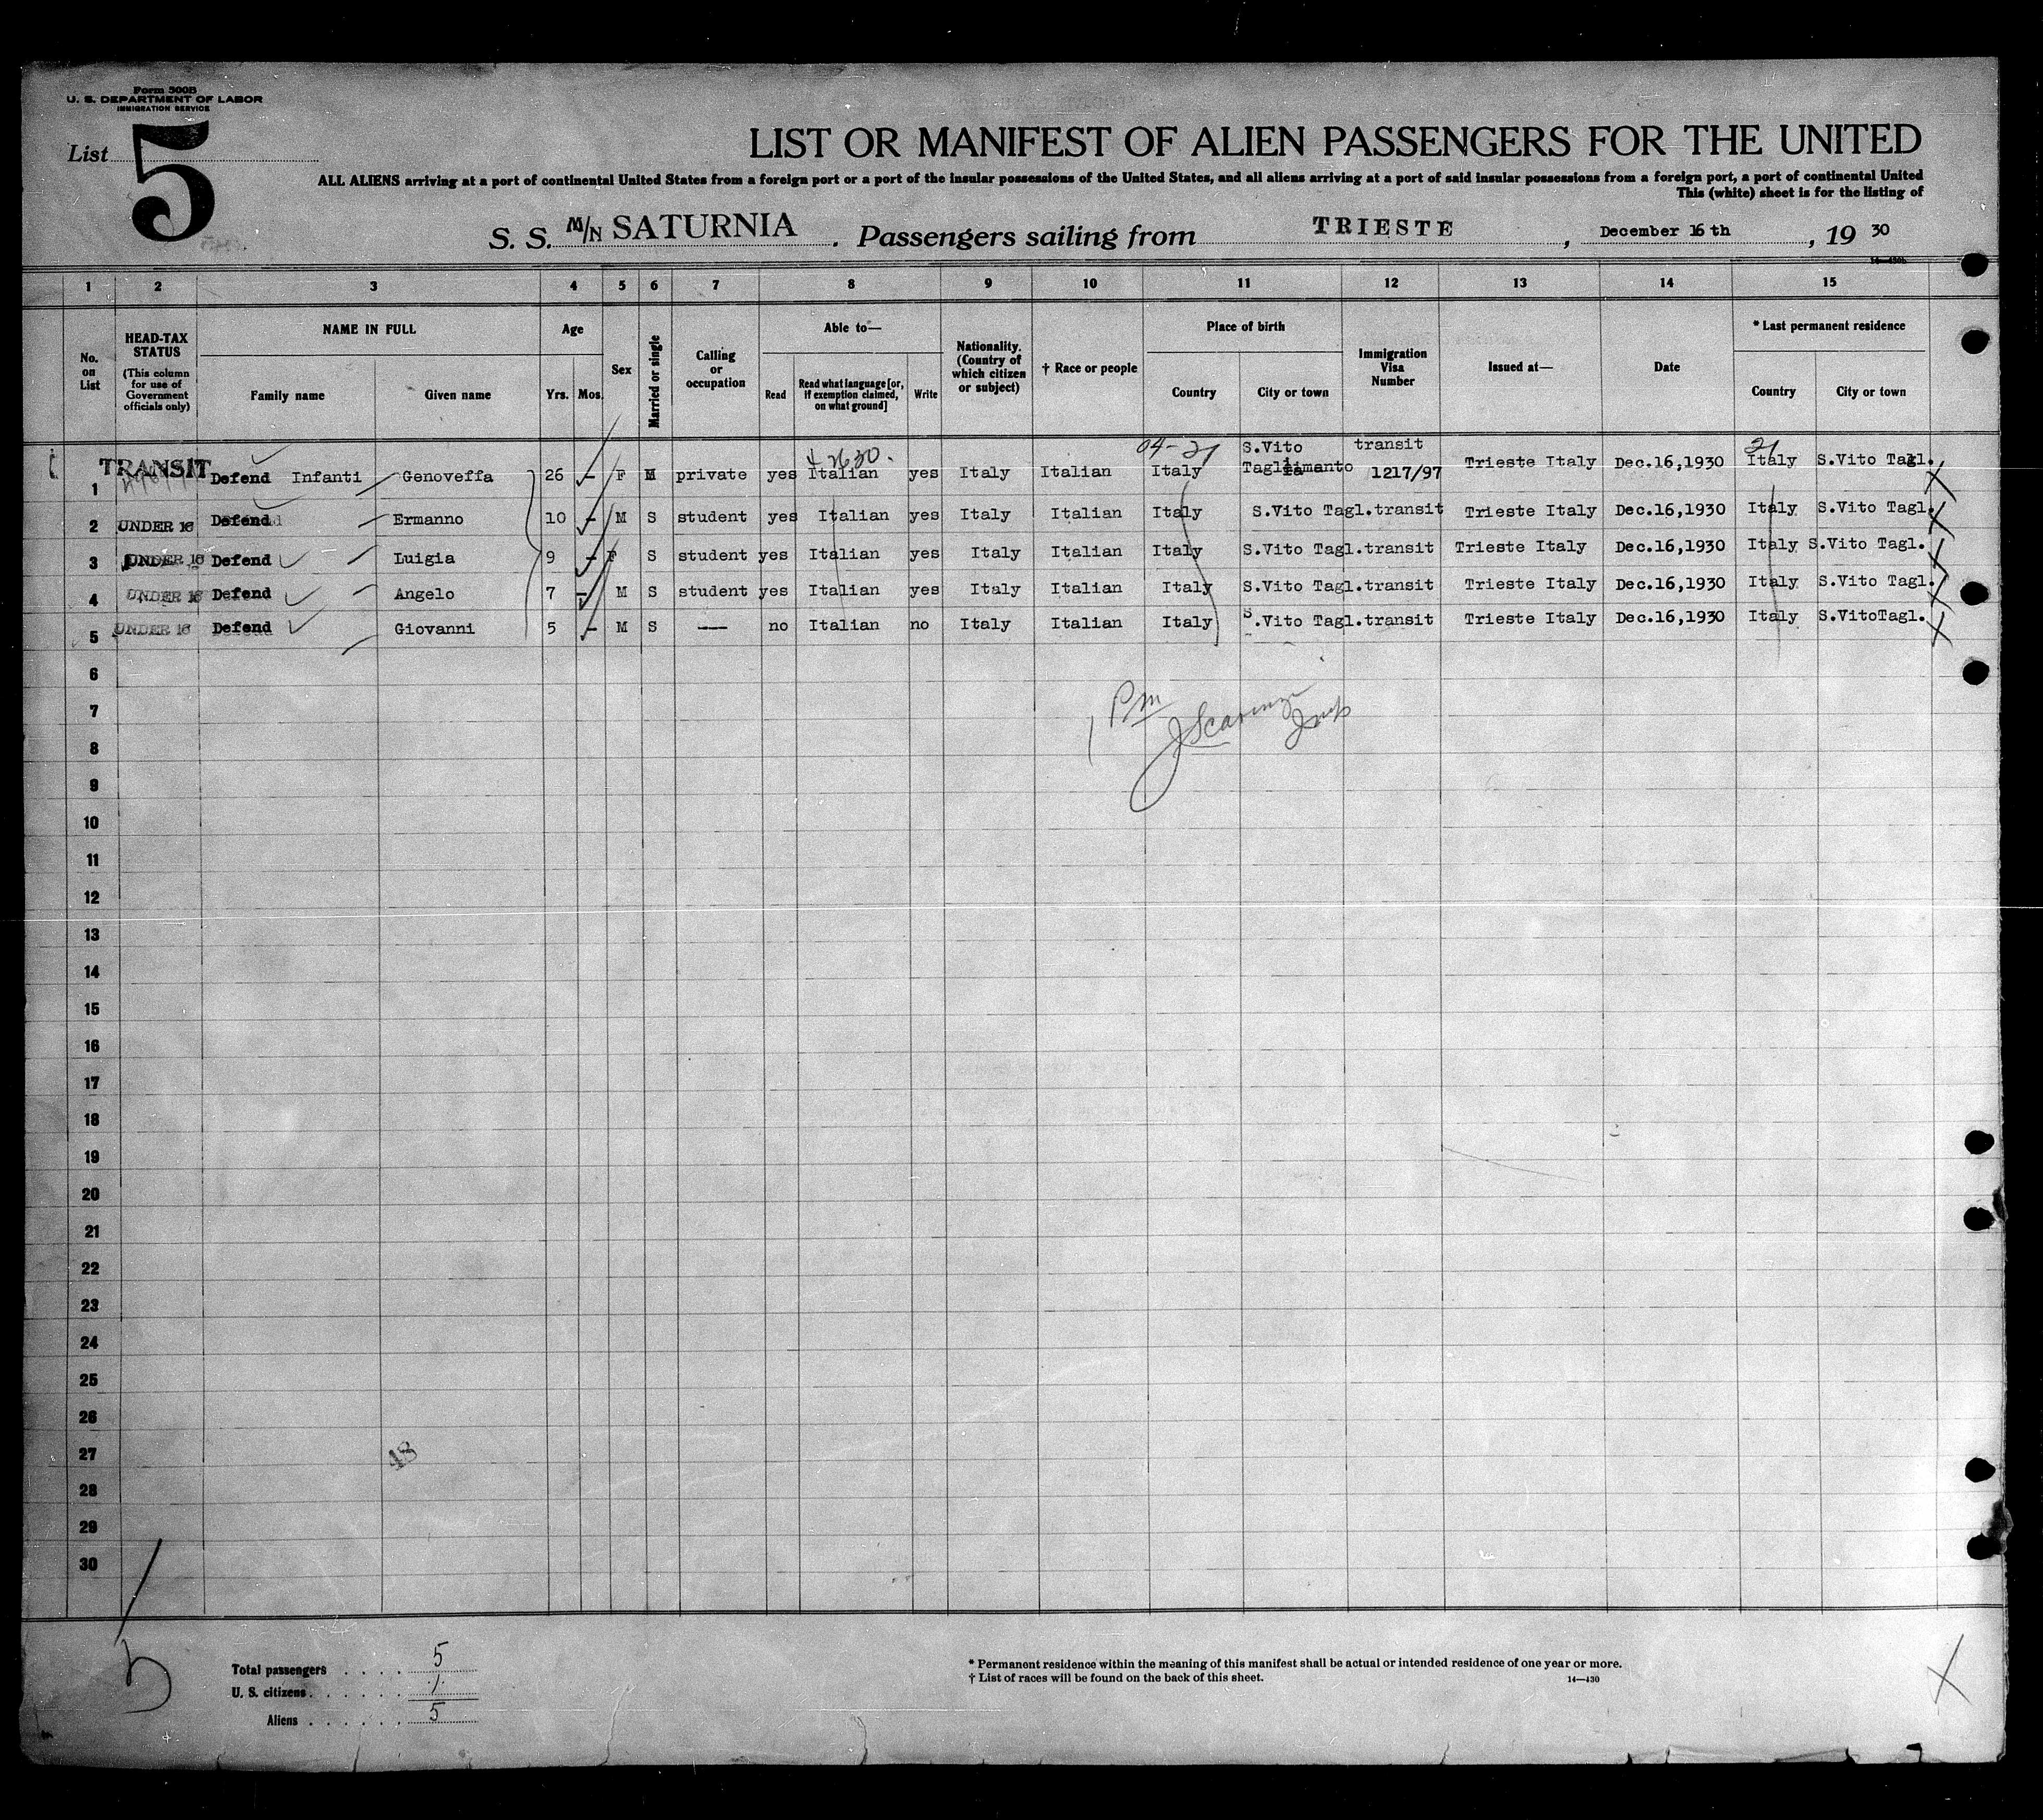 Form 500B
U. S. DEPARTMENT OF LABOR
IMMIGRATION SERVICE
List 5
LIST OR MANIFEST OF ALIEN PASSENGERS FOR THE UNITED
ALL ALIENS arriving at a port of continental United States from a foreign port or a port of the insular possessions of the United States, and all aliens arriving at a port of said insular possessions from a foreign port, a port of continental United
This (white) sheet is for the listing of
S. S. M/N SATURNIA. Passengers sailing from TRIESTE, December 16th, 19 30
1 2 3 4 5 6 7 8 9 10 11 12 13 14 15
No. on List
HEAD-TAX STATUS (This column for use of Government officials only)
NAME IN FULL Family name Given name
Age Yrs. Mos.
Sex
Married or single
Calling or occupation
Able to— Read Read what language [or, if exemption claimed, on what ground] Write
Nationality. (Country of which citizen or subject)
† Race or people
Place of birth Country City or town
Immigration Visa Number
Issued at—
Date
* Last permanent residence Country City or town
04-21 S.Vito transit 21
1 TRANSIT Defend Infanti Genoveffa 26 - F M private yes Italian yes Italy Italian Italy 1217/97 Trieste Italy Dec.16,1930 Italy S.Vito Tagl.
2 UNDER 16 Defend Ermanno 10 - M S student yes Italian yes Italy Italian Italy S.Vito Tagl. transit Trieste Italy Dec.16,1930 Italy S.Vito Tagl.
3 UNDER 16 Defend Luigia 9 - F S student yes Italian yes Italy Italian Italy S.Vito Tagl. transit Trieste Italy Dec.16,1930 Italy S.Vito Tagl.
4 UNDER 16 Defend Angelo 7 - M S student yes Italian yes Italy Italian Italy S.Vito Tagl. transit Trieste Italy Dec.16,1930 Italy S.Vito Tagl.
5 UNDER 16 Defend Giovanni 5 - M S — no Italian no Italy Italian Italy S.Vito Tagl. transit Trieste Italy Dec.16,1930 Italy S.VitoTagl.
6
7
8
9
10
11
12
13
14
15
16
17
18
19
20
21
22
23
24
25
26
27
48
28
29
30
Total passengers . . . . 5
U. S. citizens . . . . . .
Aliens . . . . . . 5
* Permanent residence within the meaning of this manifest shall be actual or intended residence of one year or more.
† List of races will be found on the back of this sheet.
14—430